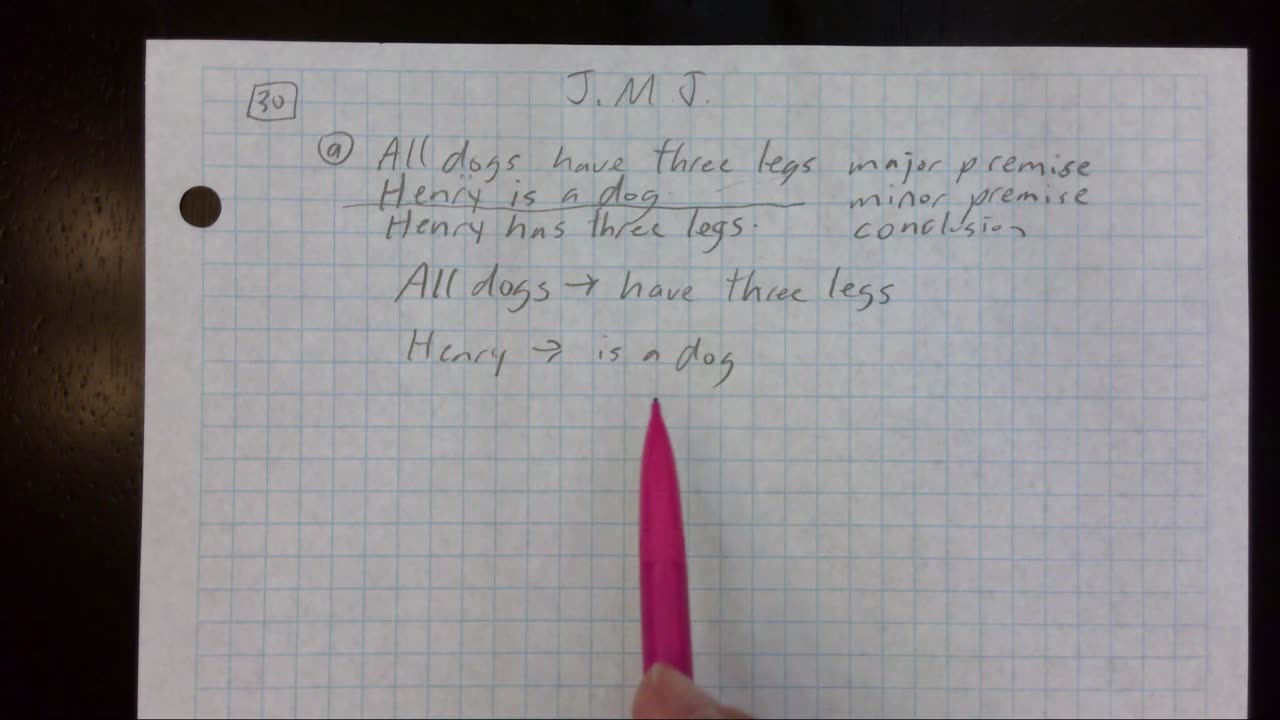 J. M J.
30
a All dogs have three legs major premise
Henry is a dog. minor premise
Henry has three legs. conclusion
All dogs → have three legs
Henry → is a dog